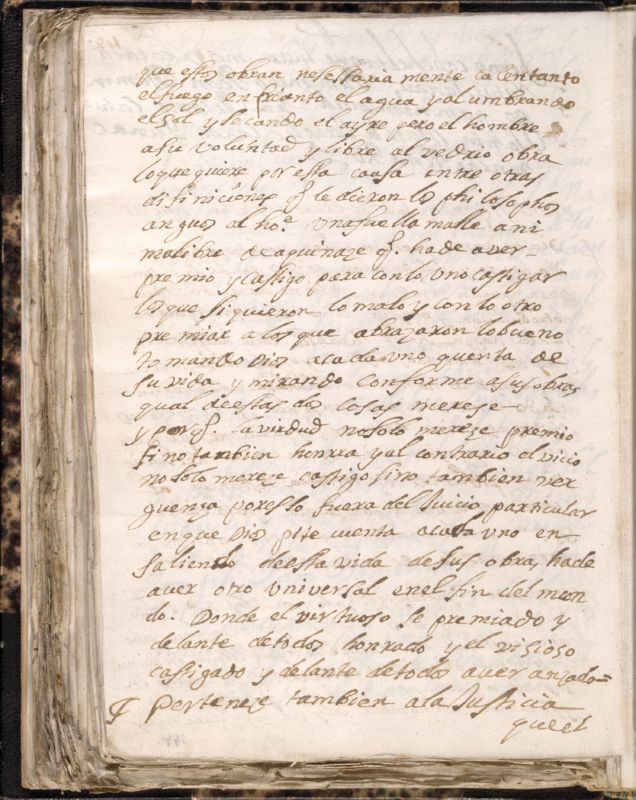 que estos obran nesessaria mente calentanto
el fuego enfrianto el agua y alumbrando
el sol y secando el ayre pero el hombre
a su voluntad y libre alvedrio obra
lo que quiere por esta causa entre otras
difiniciones q̃ le dieron los philosophos
antiguos al ho.e una fue llamalle ani
mal libre de aqui naze q̃ ha de aver
premio y castigo para con lo uno castigar
los que siguieron lo malo y con lo otro
premiar a los que abrazaron lo bueno
tomando Dios a cada uno quenta de
su vida y mirando conforme a sus obras
qual de estas dos cosas merese
y por q̃ la virdud no solo mereze premio
sino tambien honrra y al contrario el vicio
no solo mereze castigo sino tambien ver
guenza por esso fuera del Juicio particular
en que Dios pite cuenta a cada uno en
saliendo de esta vida de sus obras, hade
aver otro Universal en el fin del mun
do. Donde el virtuoso se premiado y
delante de todos honrado y el visioso
castigado y delante de todos avergonzado=
Perteneze tambien a la Justicia
que el